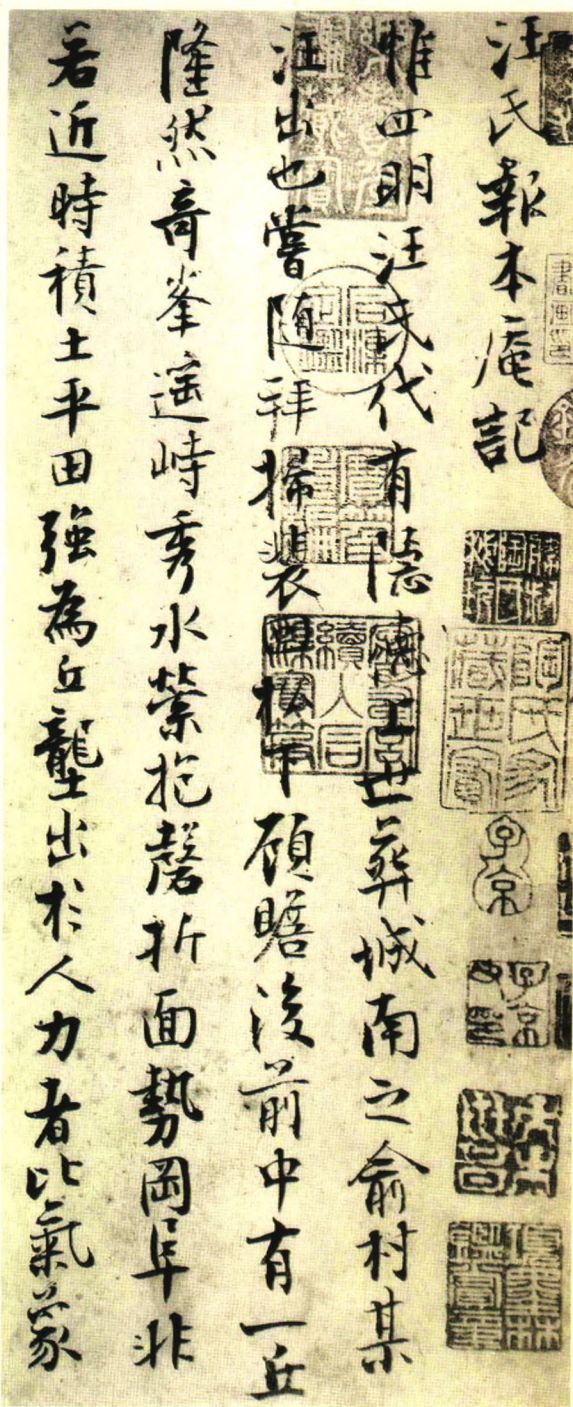 汪氏報本庵記
惟四明汪氏代有隱德上世葬城南之俞村某
汪出也嘗随拜掃裴回松下顧瞻後前中有一丘
隆然竒峯遥峙秀水縈抱磬折面勢岡阜非
若近時積土平田強為丘壟出於人力者比氣象
子京